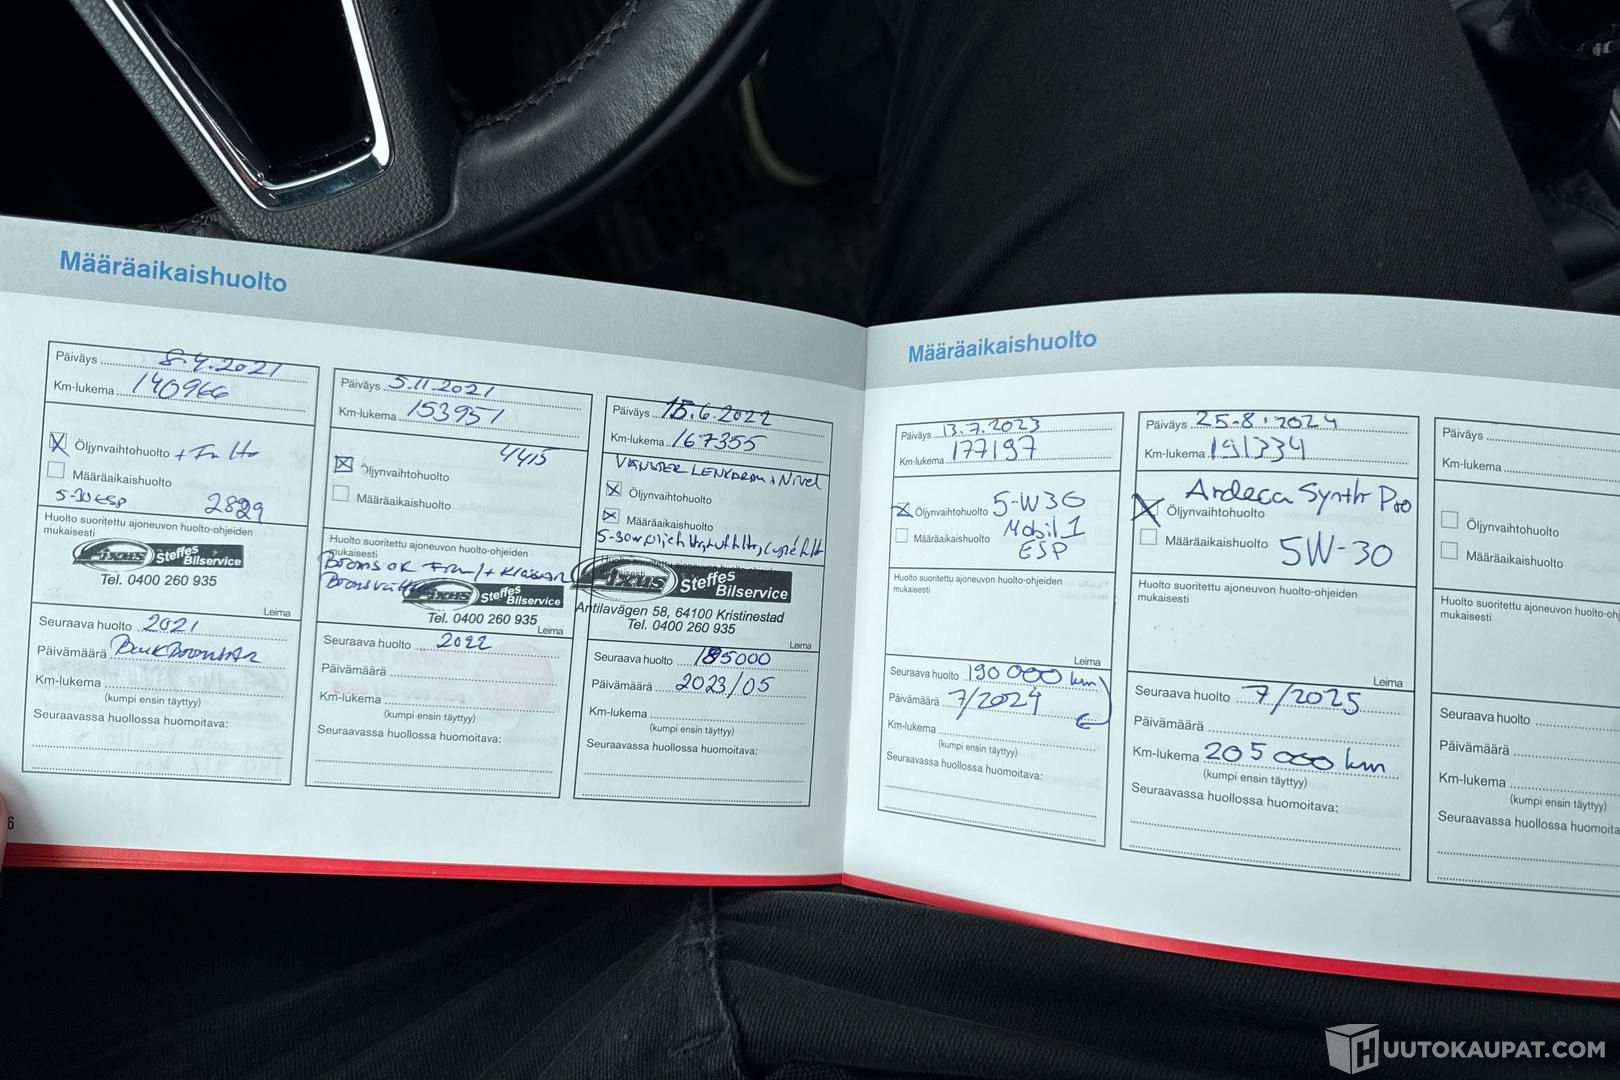 Määräaikaishuolto
Päiväys 8.4.2021
Km-lukema 140966
Öljynvaihtohuolto
Määräaikaishuolto
5-30 ESP 2829
Huolto suoritettu ajoneuvon huolto-ohjeiden
mukaisesti
Fixus Steffes Bilservice
Tel. 0400 260 935
Leima
Seuraava huolto 2021
Päivämäärä
Km-lukema
(kumpi ensin täyttyy)
Seuraavassa huollossa huomoitava:
6
Päiväys 5.11.2021
Km-lukema 153951
4415
Öljynvaihtohuolto
Määräaikaishuolto
Huolto suoritettu ajoneuvon huolto-ohjeiden
mukaisesti
BROMSOK
Fixus Steffes Bilservice
Tel. 0400 260 935
Leima
Seuraava huolto 2022
Päivämäärä
Km-lukema
(kumpi ensin täyttyy)
Seuraavassa huollossa huomoitava:
Päiväys 15.6.2022
Km-lukema 167355
VÄNSTER LENKARM + Nivel
Öljynvaihtohuolto
Määräaikaishuolto
5-30W
Fixus Steffes Bilservice
Antilavägen 58, 64100 Kristinestad
Tel. 0400 260 935
Leima
Seuraava huolto 185000
Päivämäärä 2023/05
Km-lukema
(kumpi ensin täyttyy)
Seuraavassa huollossa huomoitava:
Määräaikaishuolto
Päiväys 13.7.2023
Km-lukema 177197
Öljynvaihtohuolto 5-W30
Määräaikaishuolto Mobil 1
ESP
Huolto suoritettu ajoneuvon huolto-ohjeiden
mukaisesti
Leima
Seuraava huolto 190 000 km
Päivämäärä 7/2024
Km-lukema
(kumpi ensin täyttyy)
Seuraavassa huollossa huomoitava:
Päiväys 25.8.2024
Km-lukema 191334
Ardeca Synth Pro
Öljynvaihtohuolto
Määräaikaishuolto 5W-30
Huolto suoritettu ajoneuvon huolto-ohjeiden
mukaisesti
Leima
Seuraava huolto 7/2025
Päivämäärä
Km-lukema 205 000 km
(kumpi ensin täyttyy)
Seuraavassa huollossa huomoitava:
Päiväys
Km-lukema
Öljynvaihtohuolto
Määräaikaishuolto
Huolto suoritettu ajoneuvon
mukaisesti
Seuraava huolto
Päivämäärä
Km-lukema
(kumpi ensin täyttyy)
Seuraavassa huollossa
HUUTOKAUPAT.COM